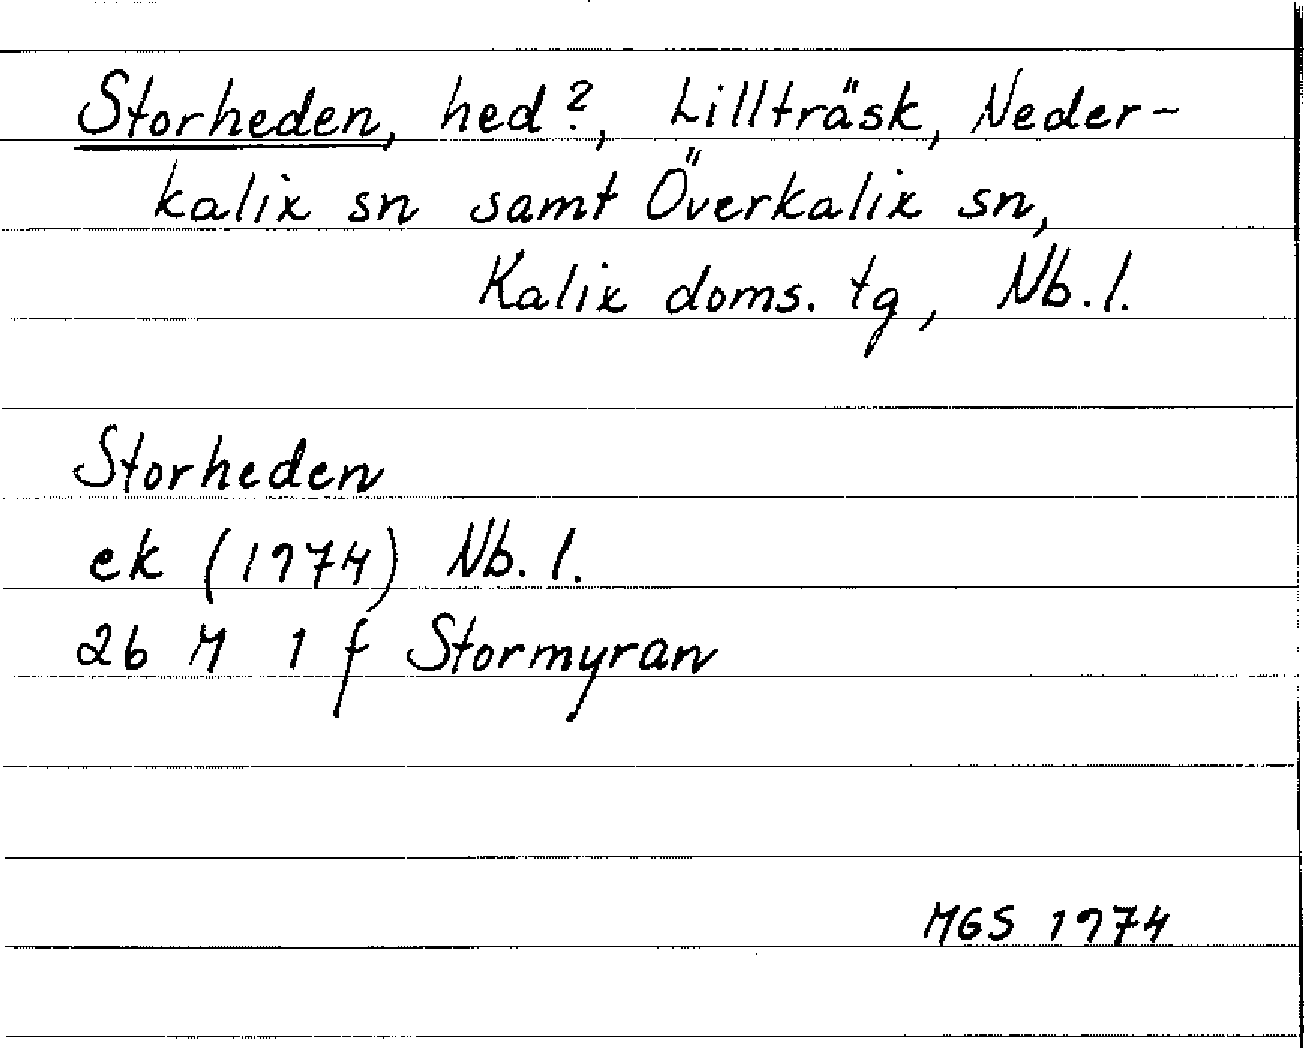 Storheden, hed?, Lillträsk, Neder-
kalix sn samt Överkalix sn,
Kalix doms. tg, Nb. l.
Storheden
ek (1974) Nb. l.
26 M 1 f Stormyran
MGS 1974